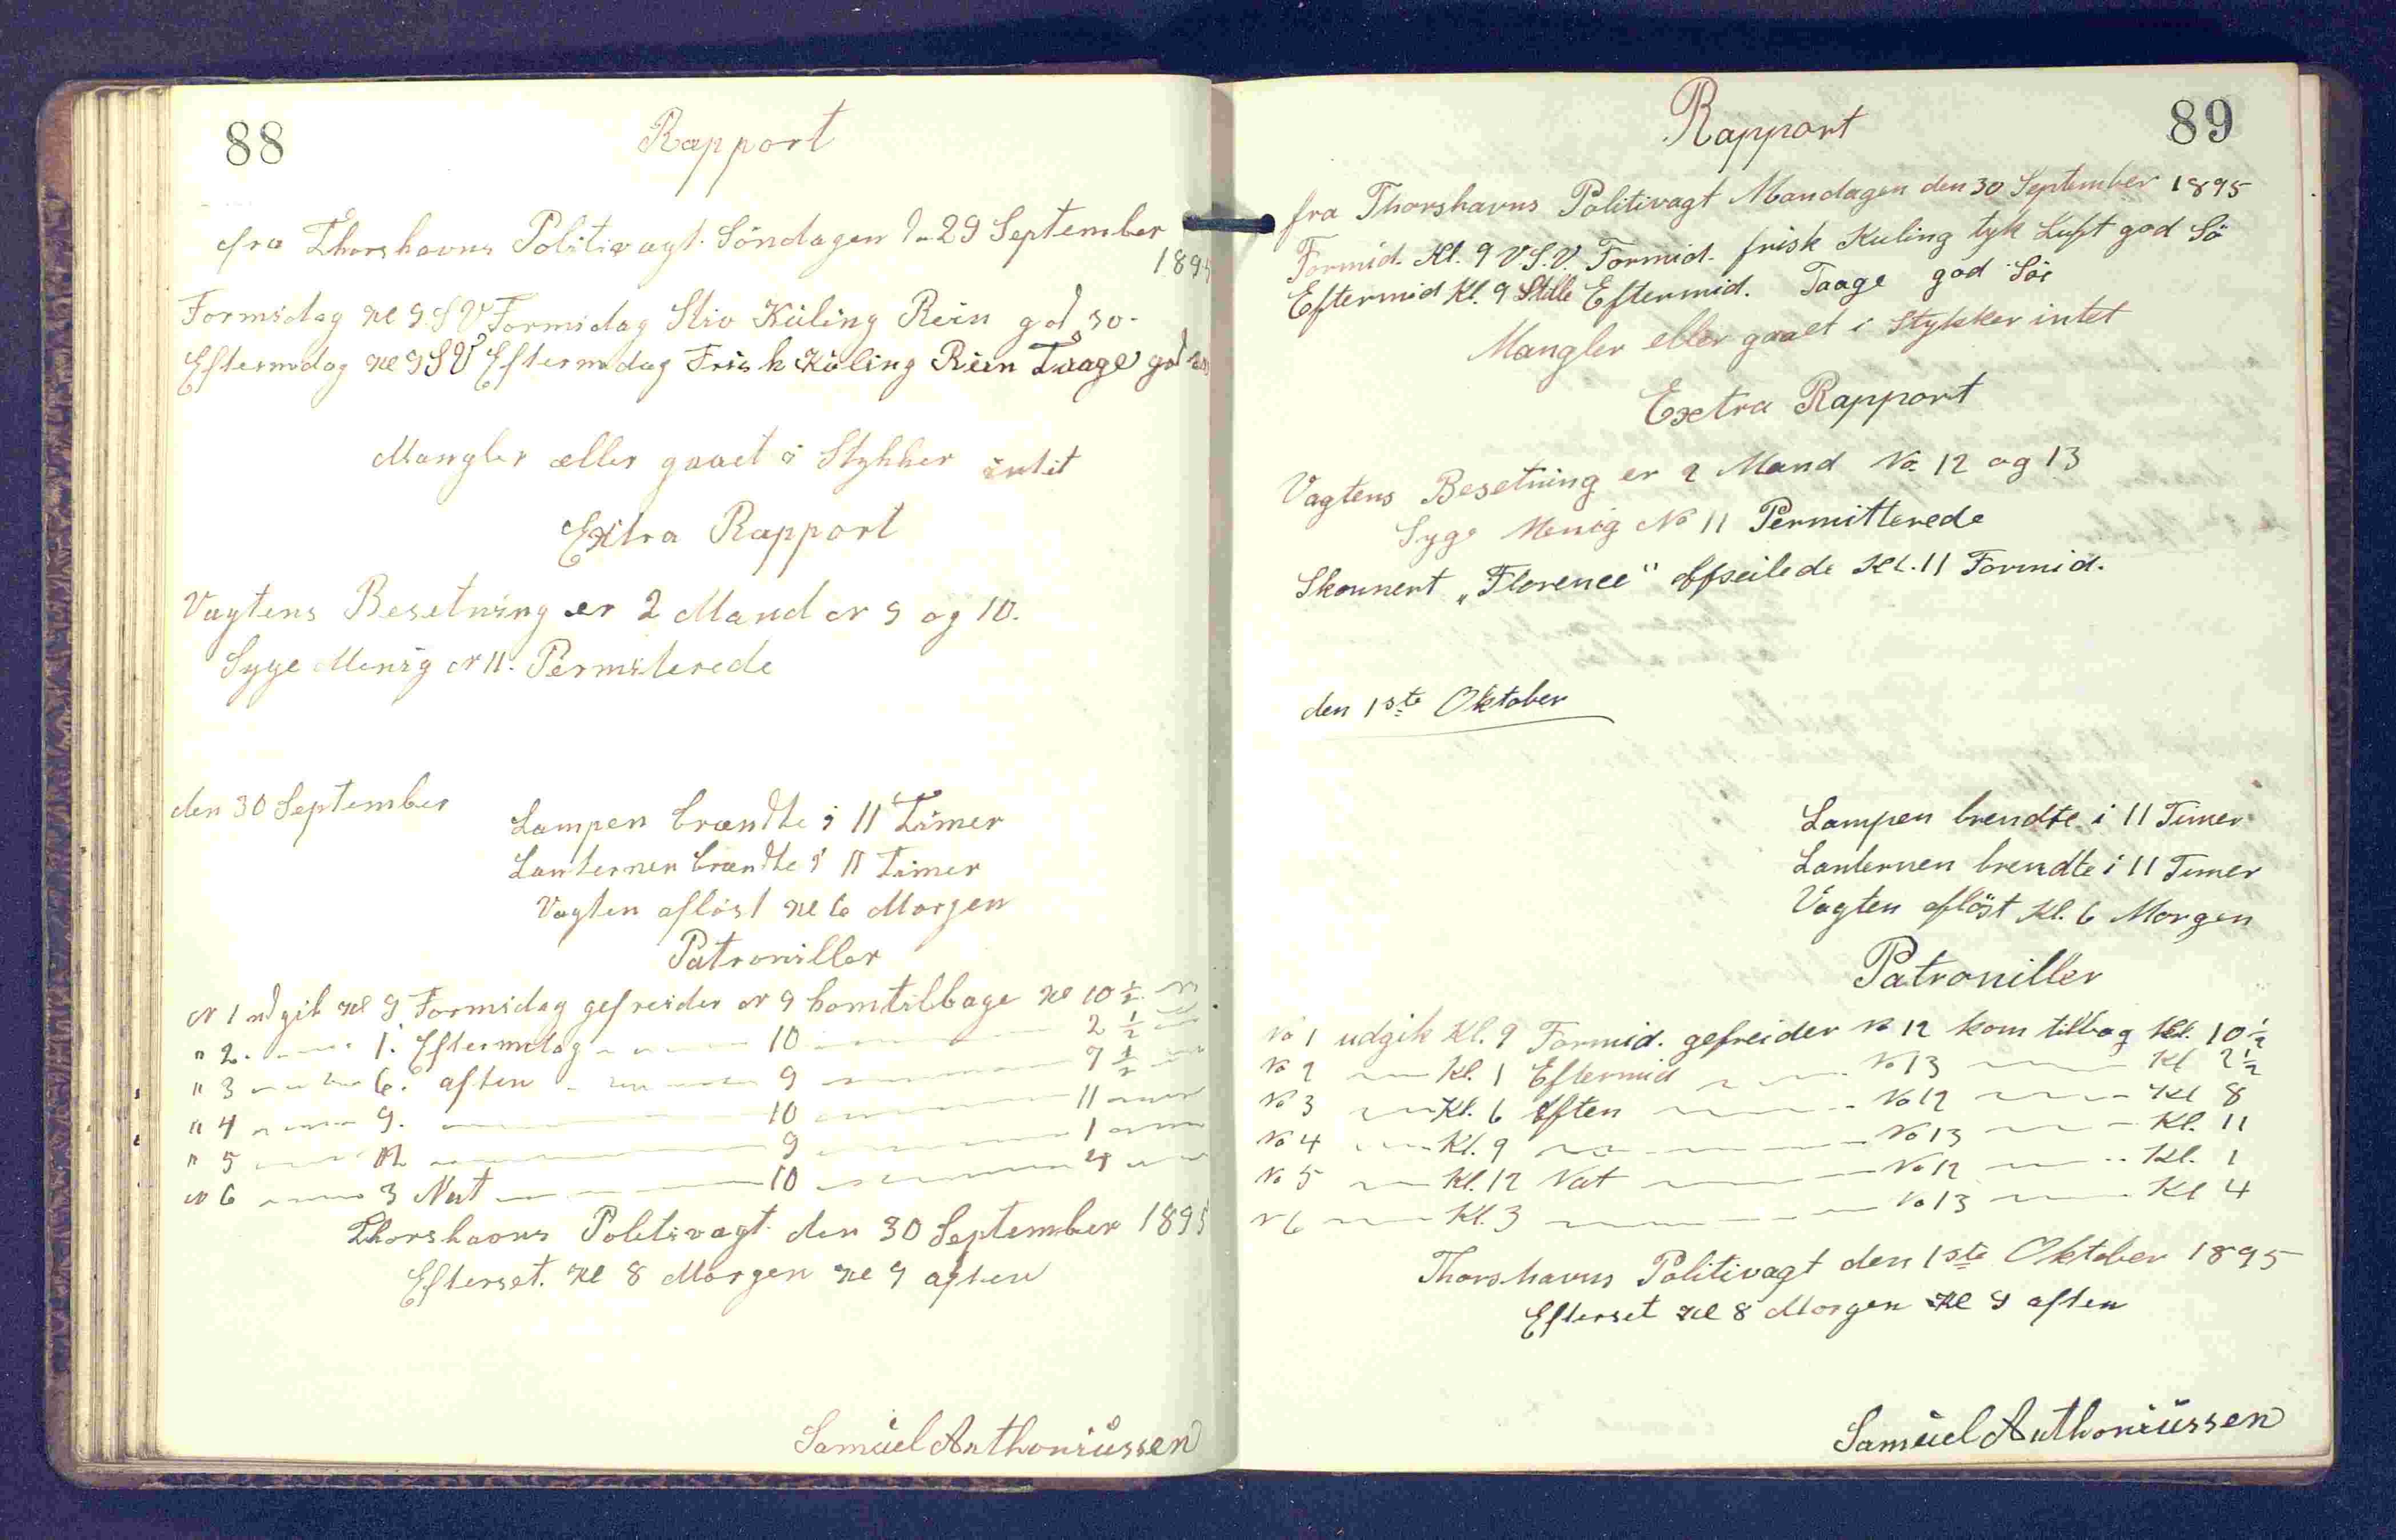 88
Rapport
fra Thorshavns Politivagt Söndagen d. 29 September
1895
Formidag Kl 9 S V Formidag Stiv Kúling Rein god so.
Eftermdag Kl 9 S V Eftermdag Frisk Kúling Rein Taage god so
Mangler eller gaaet i Stykker intet
Extra Rapport
Vagtens Besetning er 2 Mand N 9 og 10.
Syge Menig N 11. Permiterede
den 30 September
Lampen brændte i 11 Timer
Lanternen brændte i 11 Timer
Vagten aflöst Kl 6 Morgen
Patroniller
N 1 udgik Kl 9 Formidag gefreider N 9 komtilbage Kl 10 ½
" 2. 1. Eftermdag 10 2 ½
" 3 6. aften 9 7 ½
" 4 9. 10 11
" 5 12 9 1
N 6 3 Nat 10 4
Thorshavns Politivagt den 30 September 1895
Efterset. Kl 8 Morgen Kl 9 aften
Samúel Anthoniússen
89
Rapport
fra Thorshavns Politivagt Mandagen den 30 September 1895
Formid. Kl. 9 V.S.V. Formid. frisk Kuling tyk Luft god Sö
Eftermid Kl. 9 Stille Eftermid. Taage god Sö
Mangler eller gaaet i Stykker intet
Extra Rapport
Vagtens Besetning er 2 Mand No 12 og 13
Syge Menig No 11 Permitterede
Skonnert „Florence" afseilede Kl. 11 Formid.
den 1ste Oktober
Lampen brendte i 11 Timer
Lanternen brendte i 11 Timer
Vagten aflöst Kl. 6 Morgen
Patroniller
No 1 udgik Kl. 9 Formid. gefreider No 12 kom tilbag Kl. 10 ½
No 2 Kl. 1 Eftermid No 13 Kl 2 ½
No 3 Kl. 6 Aften No 12 Kl 8
No 4 Kl. 9 No 13 Kl. 11
No 5 Kl. 12 Nat No 12 Kl. 1
N 6 Kl. 3 No 13 Kl 4
Thorshavns Politivagt den 1ste Oktober 1895
Efterset Kl 8 Morgen Kl 9 aften
Samúel Anthoniússen